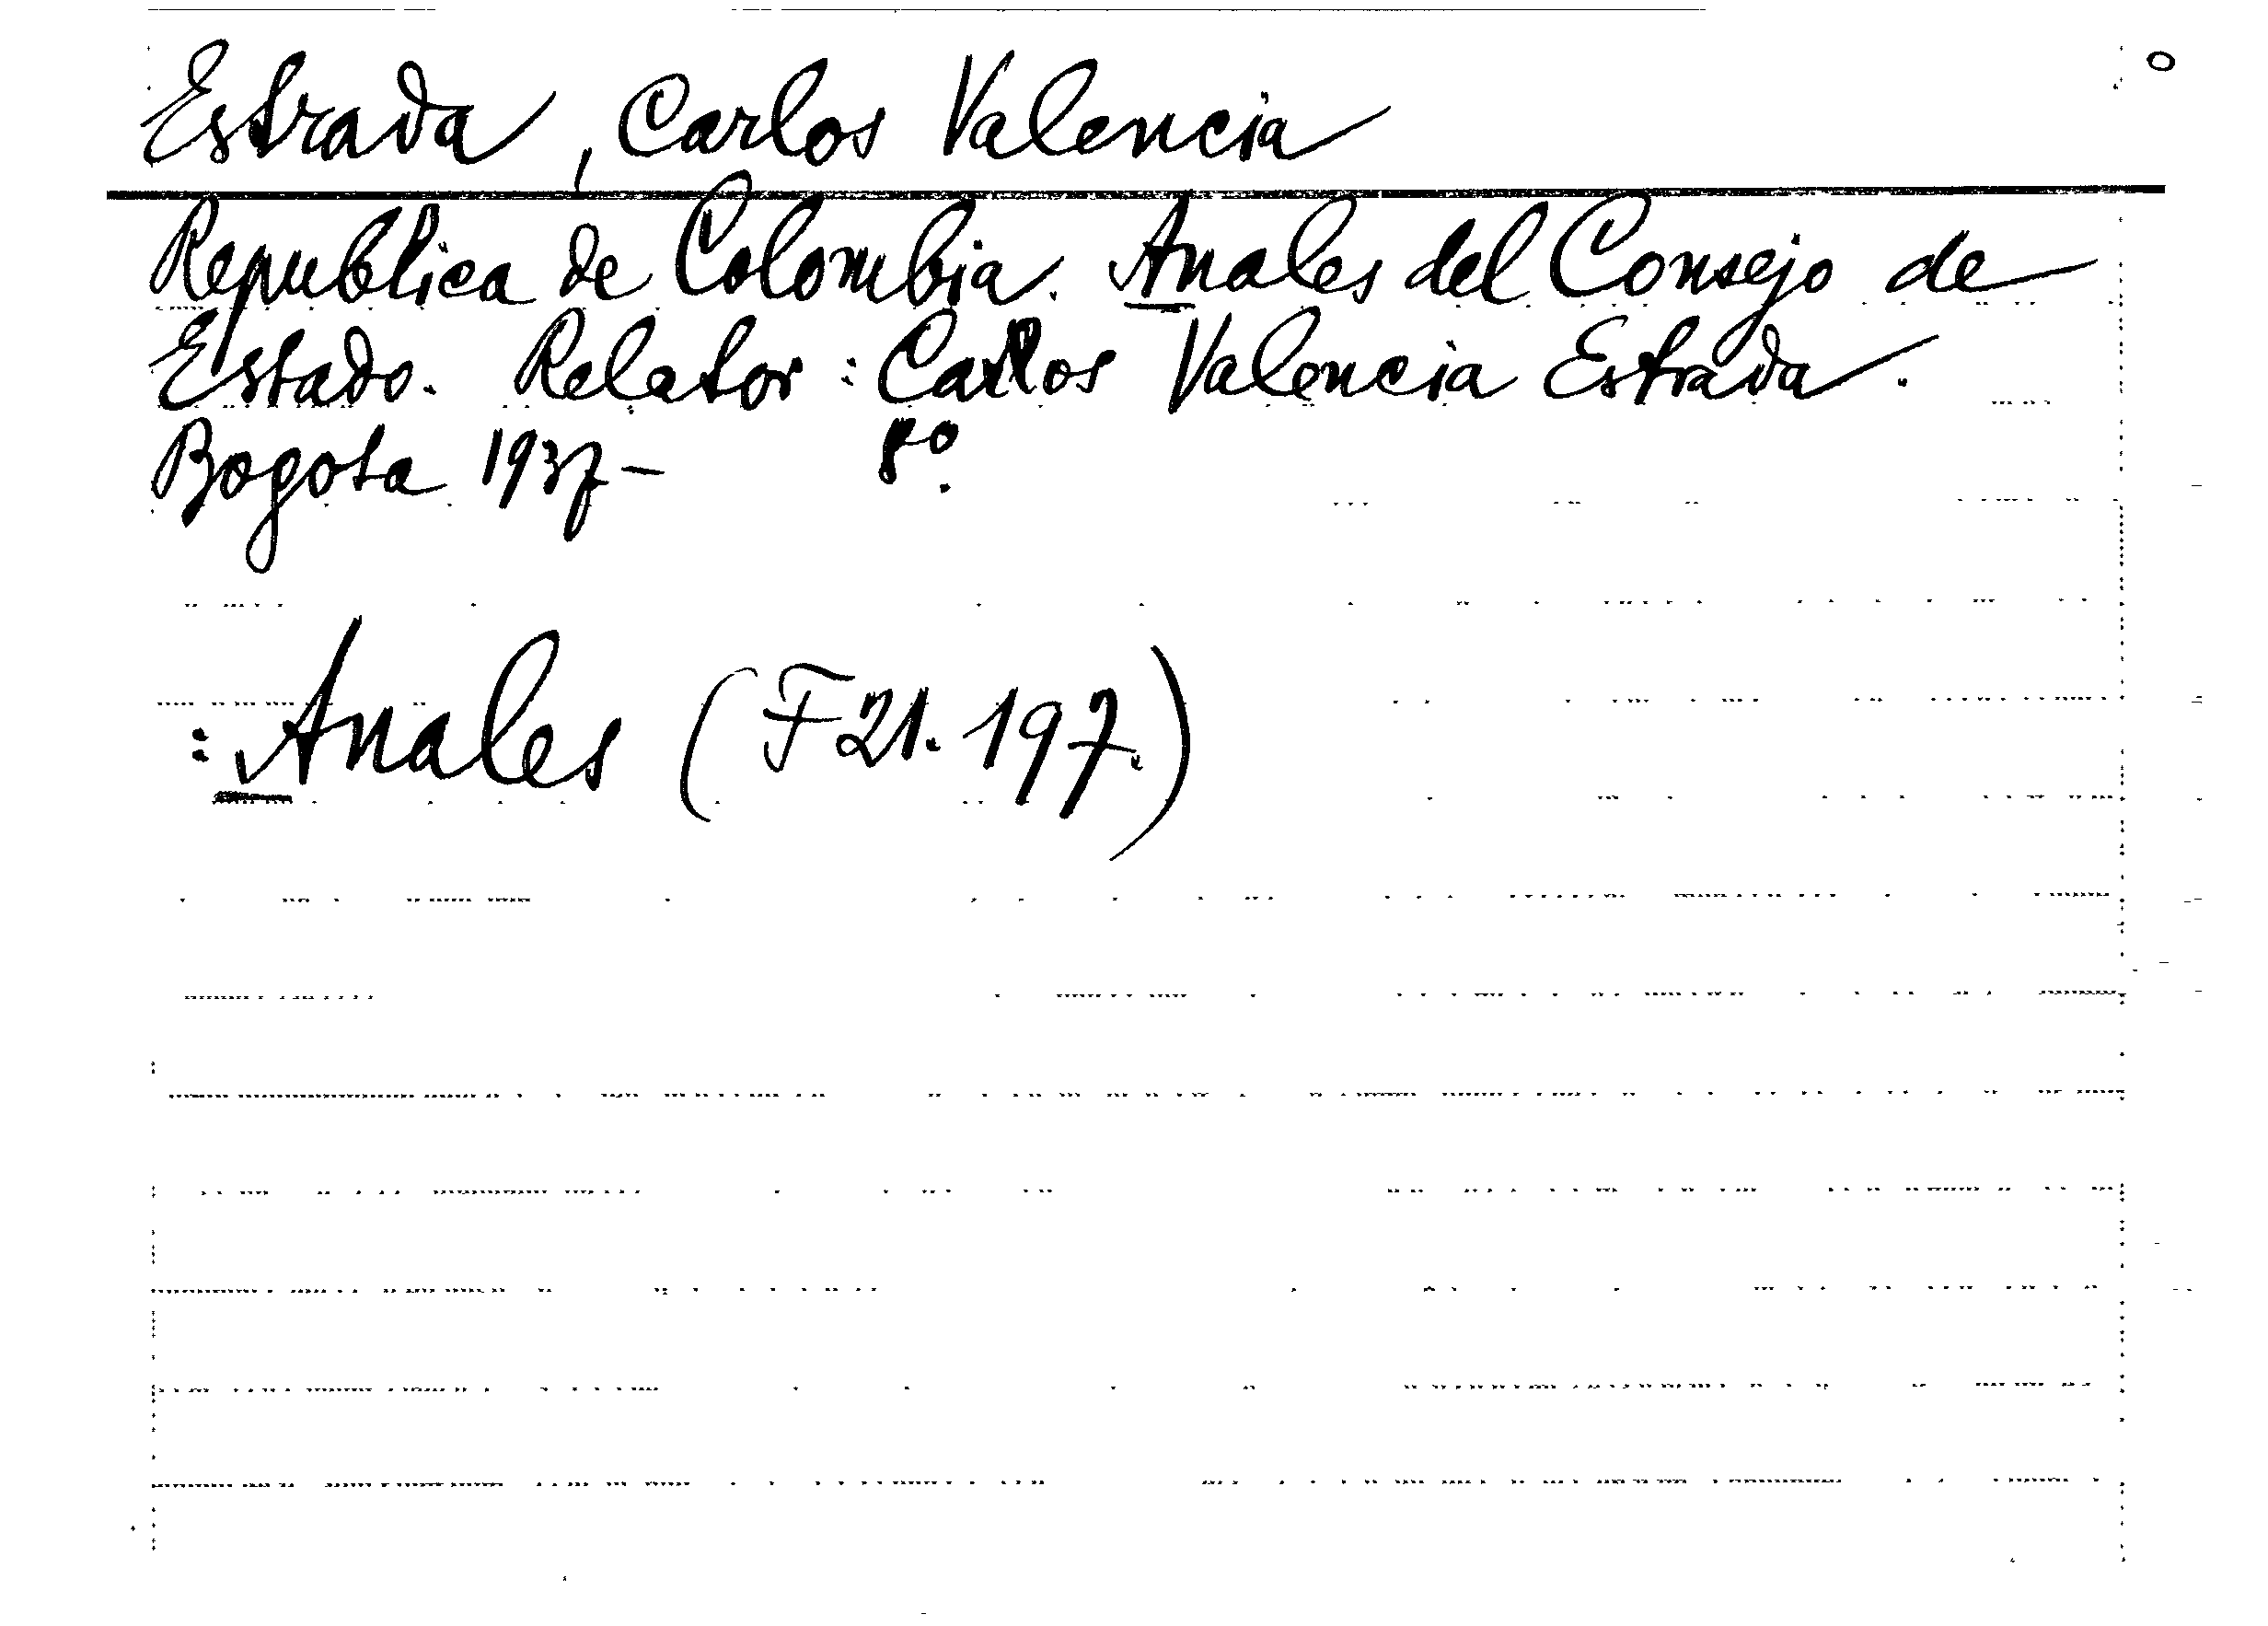 Estrada, Carlos Valencia
Republica de Colombia. Anales del Consejo de
Estado. Relator: Carlos Valencia Estrada.
Bogota 1937- 8º.
: Anales (F21.197.)